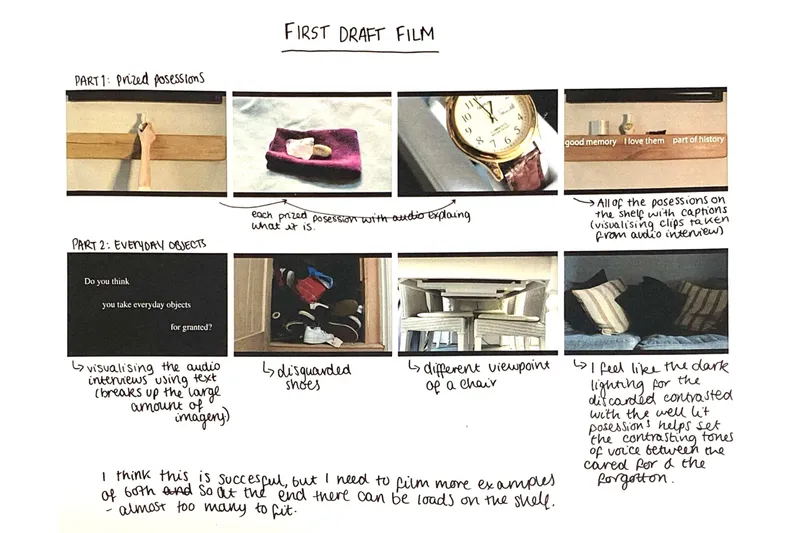 FIRST DRAFT FILM
PART 1: PRIZED POSESSIONS
good memory I love them part of history
each prized posession with audio explaing
what it is.
All of the posessions on
the shelf with captions
(visualising clips taken
from audio interview)
PART 2: EVERYDAY OBJECTS
Do you think
you take everyday objects
for granted?
visualising the audio
interviews using text
(breaks up the large
amount of
imagery)
disguarded
shoes
different viewpoint
of a chair
I feel like the dark
lighting for the
discarded contrasted
with the well lit
posessions helps set
the contrasting tones
of voice between the
cared for & the
forgotton.
I think this is succesful, but I need to film more examples
of both and so at the end there can be loads on the shelf.
- almost too many to fit.